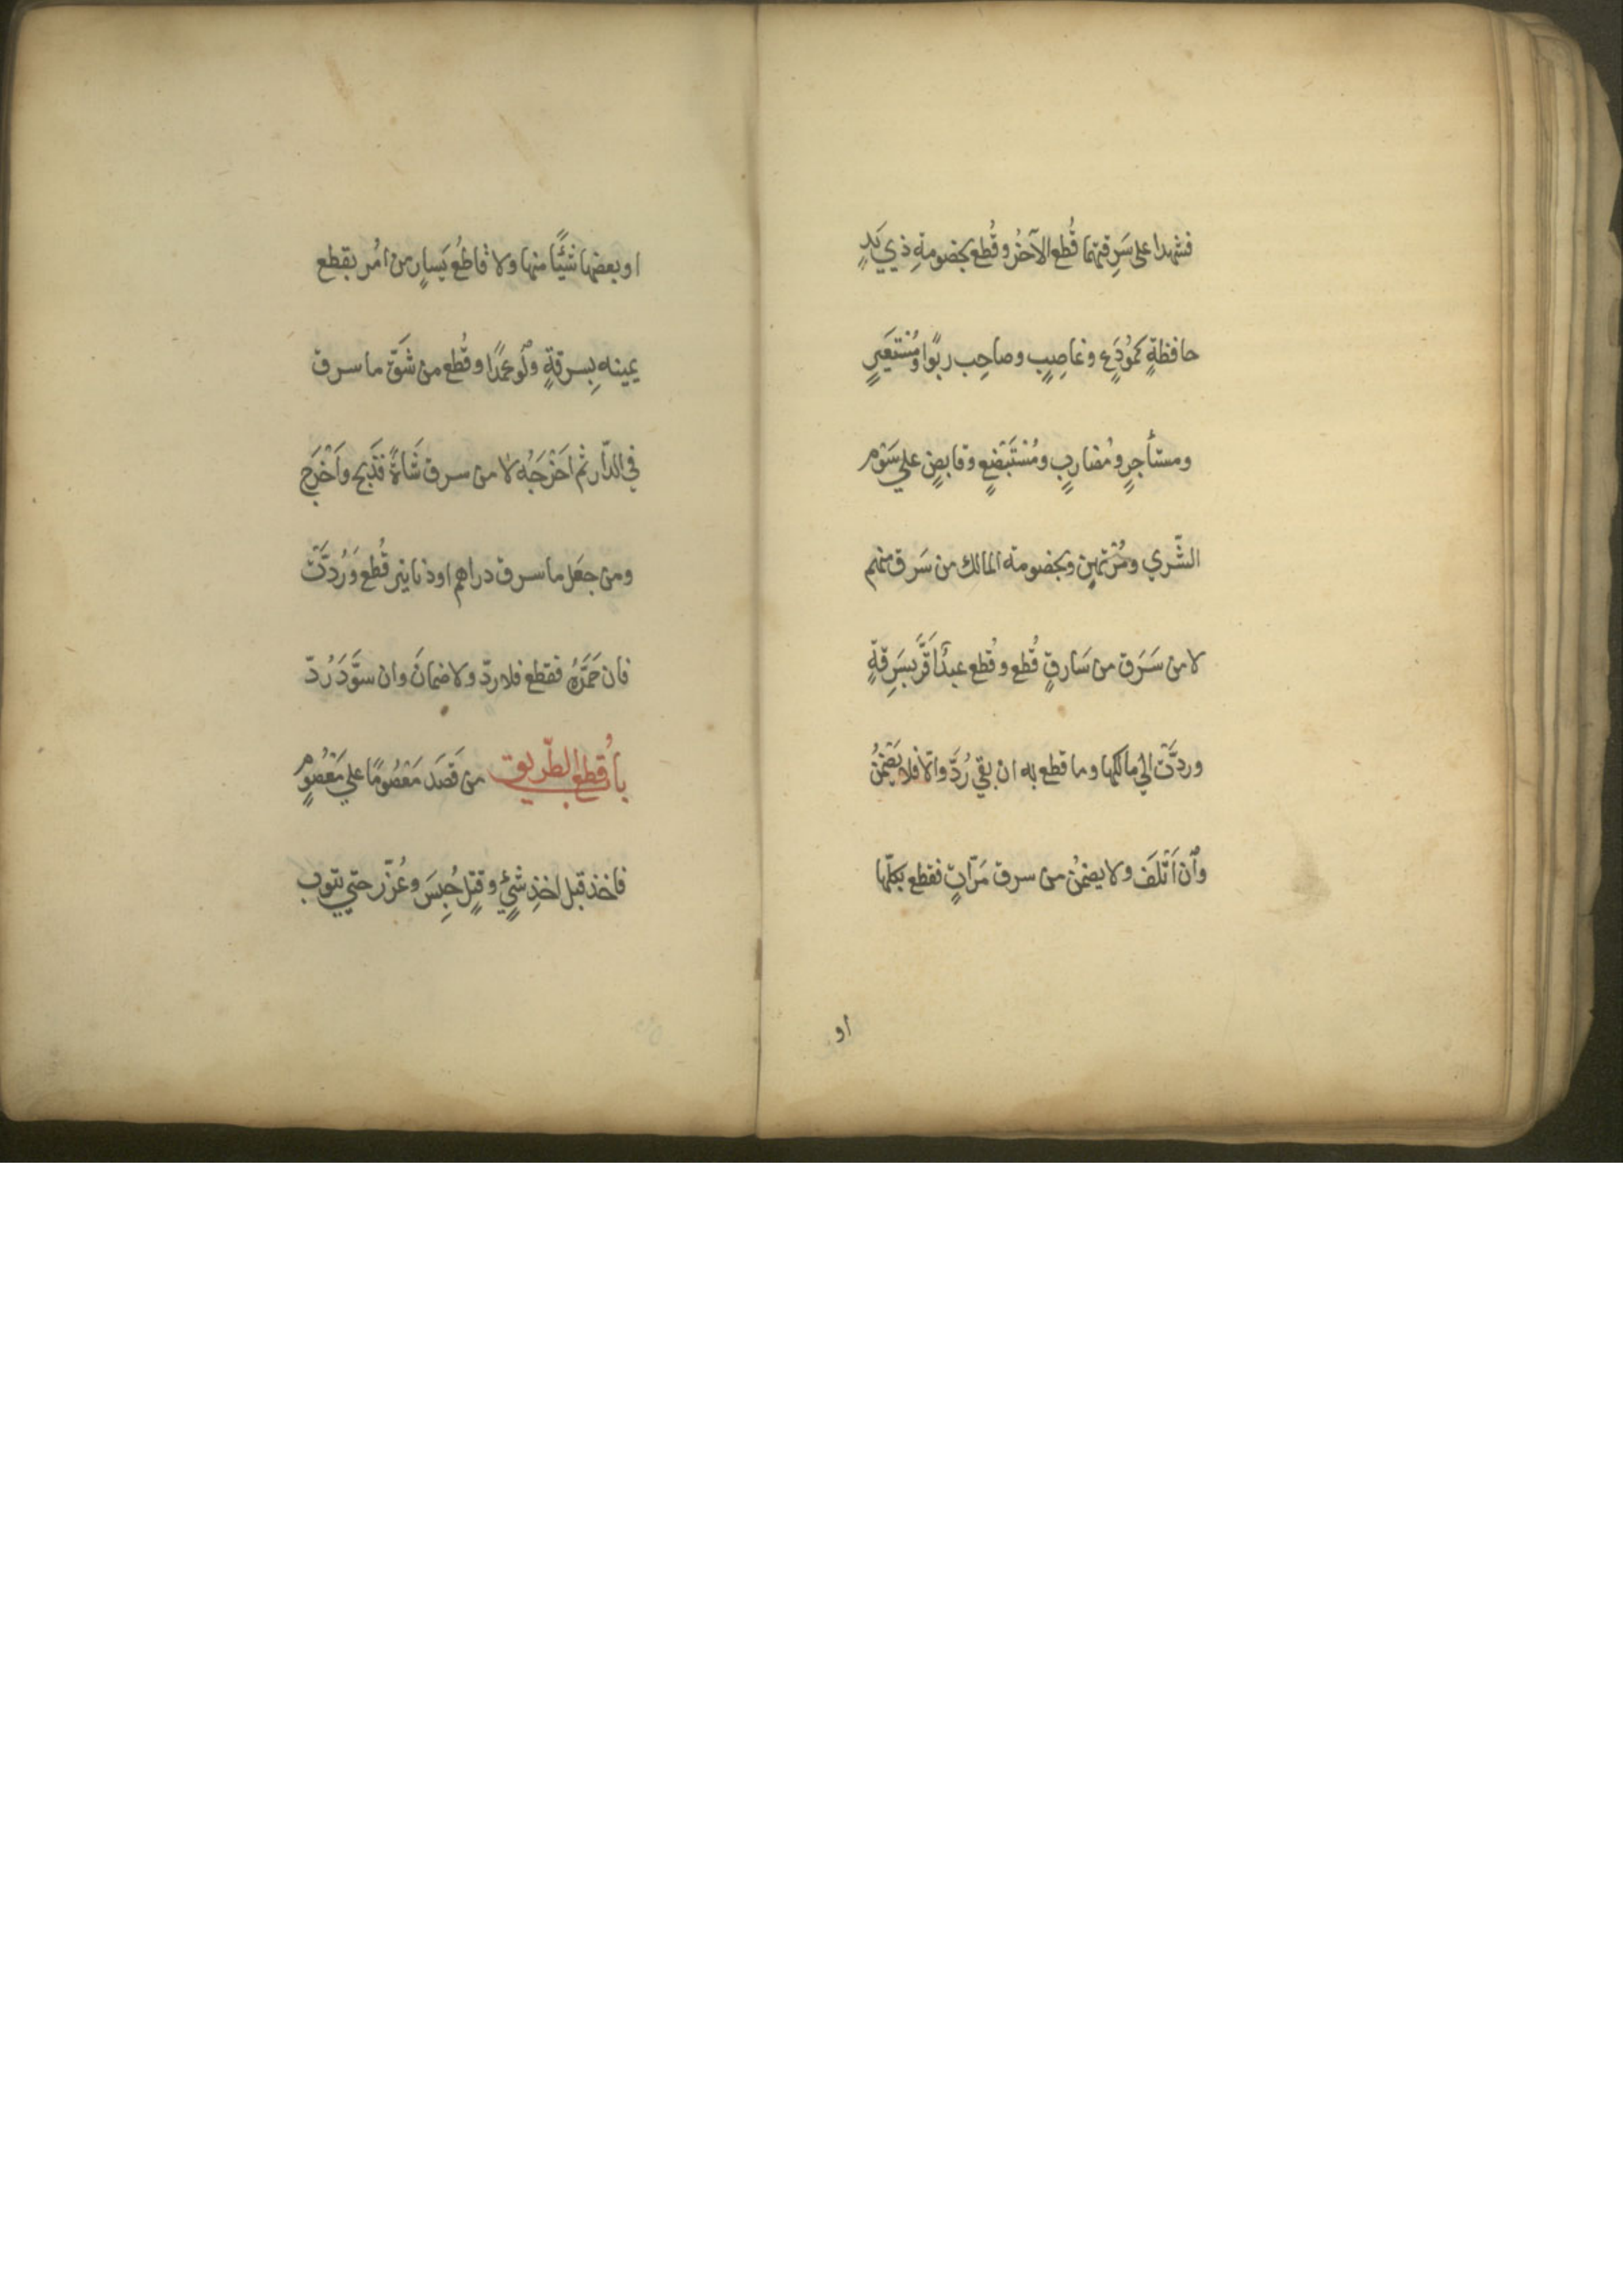 فشهدا على سَرِقتهما قُطع الآخرُ وقُطع بخصومةِ ذي يَدٍ
حافظةٍ كمُودَعٍ وغاصِبٍ وصاحِب ربًوا ومُسْتَعيرٍ
ومستأجرٍ ومُضاربٍ ومُسْتَبْضِعٍ وقابضٍ علي سَوْم
الشّري ومُرْتهِنٍ وبخصومة المالك من سَرَق منهم
لا من سَرَق من سَارقٍ قُطع وقُطع عبدٌ اَقَرَّ بسَرِقةٍ
وردَّتْ الي مالكها وما قطع به ان بقي رُدَّ والّا فلا يَضْمَنُ
واَن اَتْلَفَ ولا يضمنُ من سرق مَرّاتٍ فقطع بكلّها
او
او بعضها شَيْئًا منها ولا قاطعُ يَسارِ من اُمر بقطع
يمينه بِسرقةٍ ولَو عمدًا وقُطع من شَقّ ما سرق
في الدّار ثم اَخْرَجَهُ لا من سرق شَاةً فذبح واَخْرَج
ومن جعَل ما سرق دراهم او دنانير قُطع ورُدَّتْ
فان حَمَّرَهُ فقطع فلا ردّ ولا ضمانَ وان سوَّدَ رُدّ
بابُ قطع الطّريق من قَصَدَ مَعْصُومًا علي مَعْصُومٍ
فاخذ قبل اخذِ شيْءٍ وقتلٍ حُبِسَ وعُزّر حتي يتوب